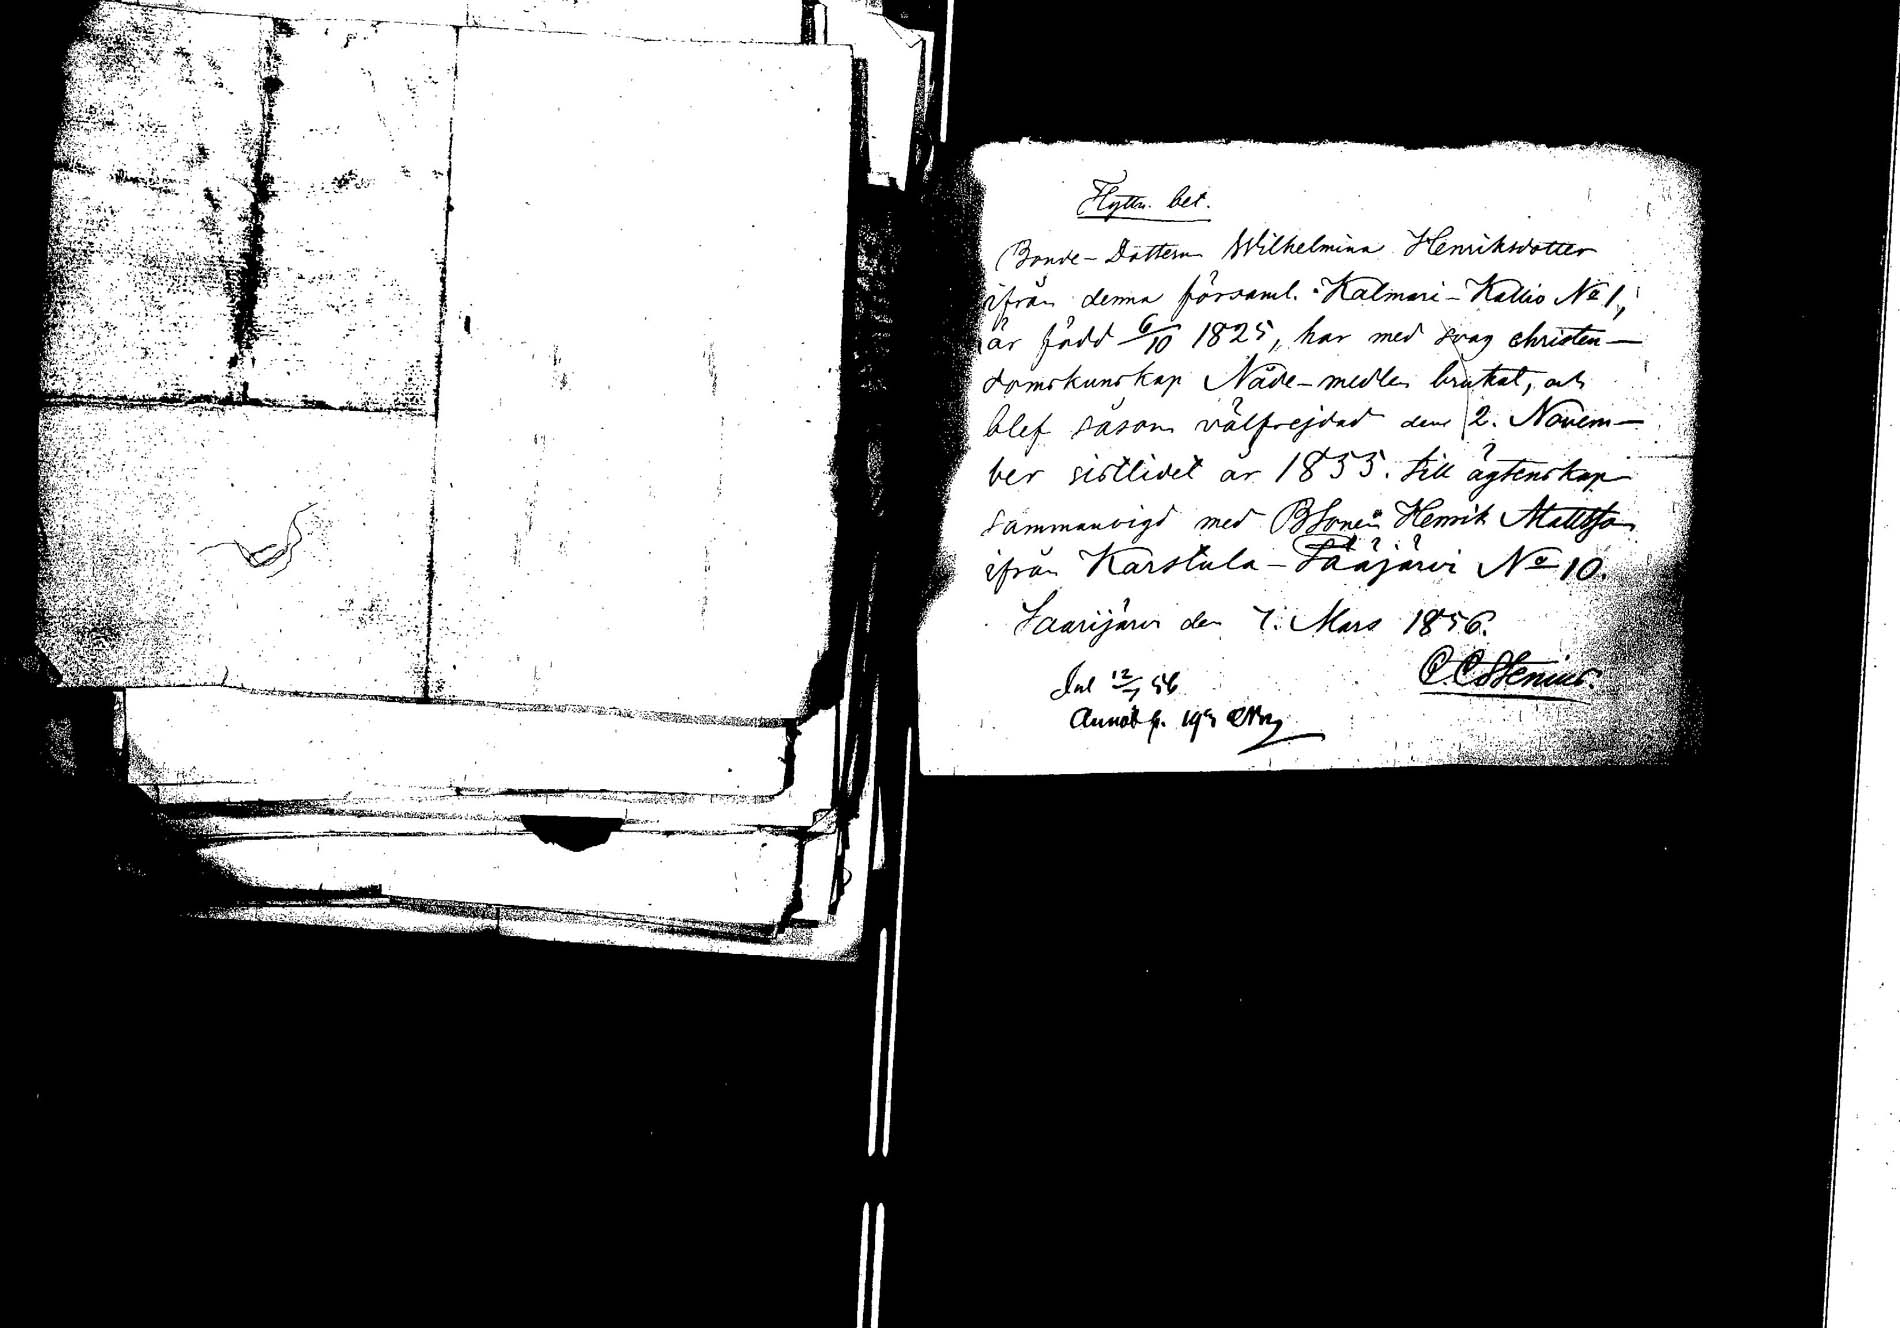 Flyttn. bet.
Bonde-Dottern Wilhelmina Henriksdotter
ifrån denna församl. Kalmari-Kallio No 1,
är född 6/10 1825, har med svag christen-
domskunskap Nåde-medlen brukat, och
blef såsom välfrejdad den 2. Novem-
ber sistlidet år 1855. till ägtenskap
sammanvigd med BSonen Henrik Mattsson
ifrån Karstula-Pääjärvi No 10.
Saarijärvi den 7. Mars 1856.
C. C. Stenius.
Inl 12/7 56
Annot p. 195